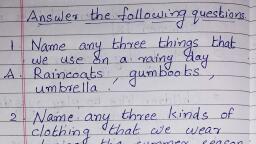 Answer the following questions.
1 Name any three things that
we use on a rainy day
A. Raincoats, gumboots,
umbrella.
2 Name any three kinds of
clothing that we wear
the summer season